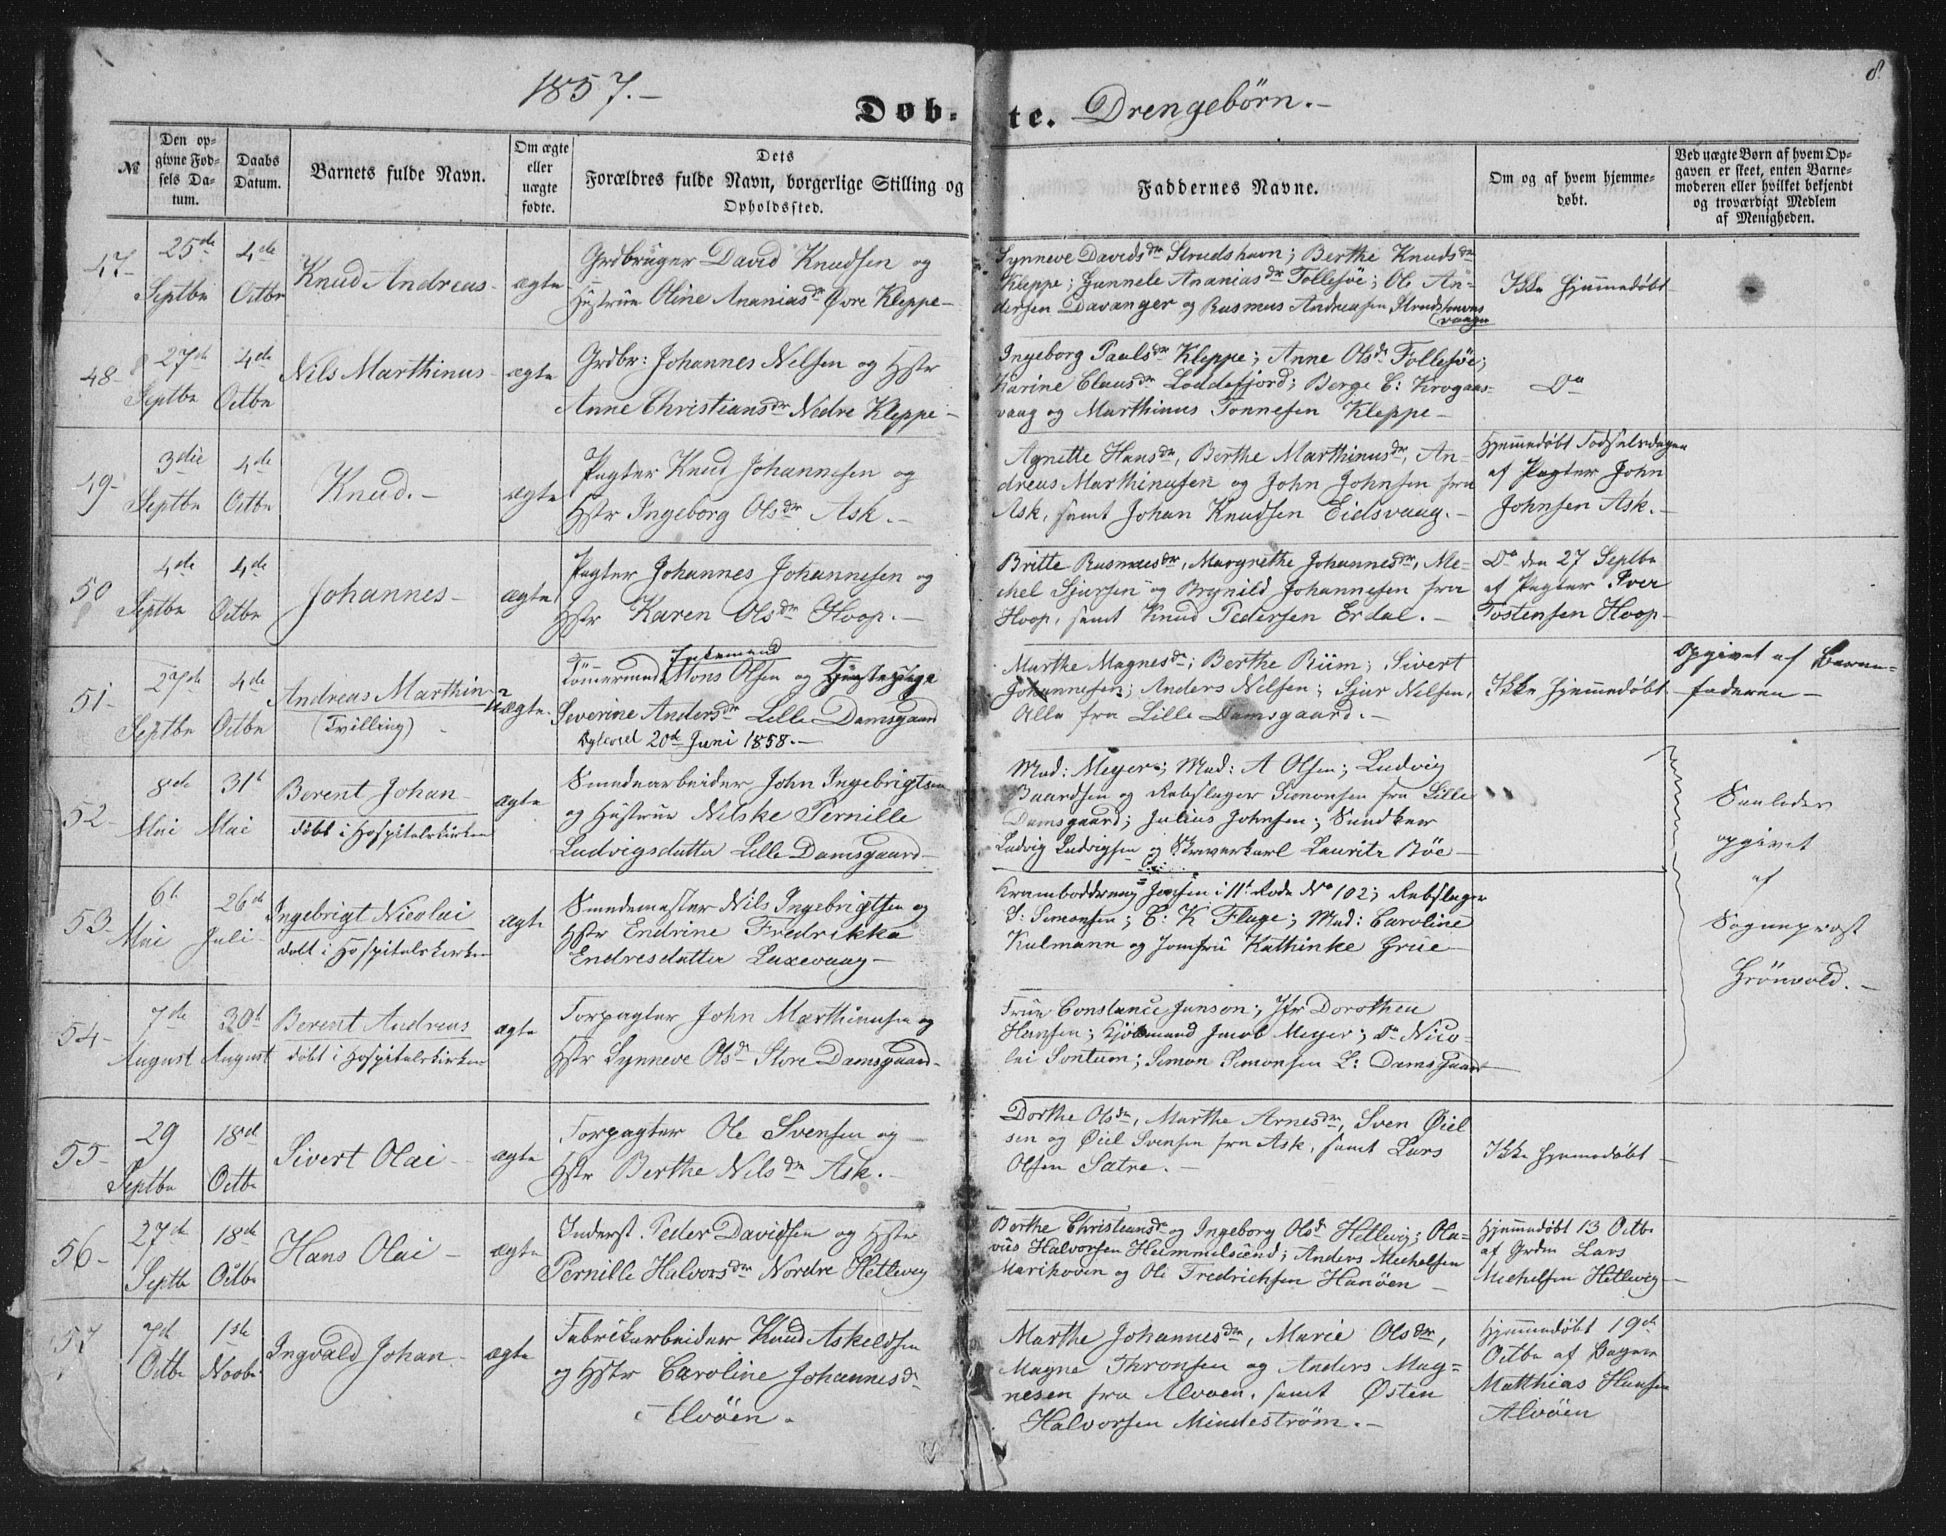 1857.- Døb- te. Drengebörn.- 8.
№
Den op-
givne Fød-
sels Da-
tum.
Daabs
Datum.
Barnets fulde Navn.
Om ægte
eller
uægte
fødte.
Dets
Forældres fulde Navn, borgerlige Stilling og
Opholdssted.
Faddernes Navne.
Om og af hvem hjemme-
døbt.
Ved uægte Børn af hvem Op-
gaven er skeet, enten Barne-
moderen eller hvilket bekjendt
og troværdigt Medlem
af Menigheden.
47-
25de
Septbr
4de
Octbr
Knud Andreas-
ægte
Grdbruger David Knudsen og
Hustrue Oline Ananiasdr Övre Kleppe-
Synneve Davidsdr Strudshavn; Berthe Knudsdr
Kleppe; Gunnele Ananiasdr Follesöe; Ole An-
dersen Davanger og Rasmus Andreasen Strudshavns
vaagen
Ikke hjemmedøbt
48-
27de
Septbr
4de
Octbr
Nils Marthinus-
ægte
Grdbr: Johannes Nelsen og Hstr
Anne Christiansdr Nedre Kleppe-
Ingeborg Paulsdr Kleppe; Anne Olsdr Follesöe;
Karine Clausdr Loddefjord; Berge C: Krogaas-
vaag og Marthinus Tonnesen Kleppe-
Do
49-
3die
Septbr
4de
Octbr
Knud.-
ægte
Pagter Knud Johannesen og
Hstr Ingeborg Olsdr Ask.-
Agnette Hansdr, Berthe Marthinusdr, An-
dreas Marthinusen og John Johnsen fra
Ask, samt Johan Knudsen Eidsvaag.-
Hjemmedøbt Fødselsdagen
af Pagter John
Johnsen Ask.-
50
4de
Septbr
4de
Octbr
Johannes-
ægte
Pagter Johannes Johannesen og
Hstr Karen Olsdr Hoop.-
Britte Rasmusdr, Margrethe Johannesdr, Me-
chel Sjursen og Brynild Johannesen fra
Hoop, samt Knud Pedersen Erdal.-
Do den 27 Septbr
af Pagter Iver
Tostensen Hoop-
51-
27de
Septbr
4de
Octbr
Andreas Marthin-
(Tvilling)
uægte.
Enkemand
Tömermand Mons Olsen og Tjenestepige
Severine Andersdr Lille Damsgaard
Ægteviet 20de Juni 1858.-
Marthe Magnesdr; Berthe Riim; Sivert
Johannesen; Anders Nilsen; Sjur Nilsen,
Alle fra Lille Damsgaard.-
Ikke hjemmedøbt
Opgivet af Barne-
faderen-
52-
8de
Mai
31te
Mai
Berent Johan-
døbt i Hospitalskirken
ægte
Smedearbeider John Ingebrigtsen
og Hustrue Nilske Pernille
Ludvigsdatter Lille Damsgaard-
Mad: Meyer; Mad: A Olsen; Ludvig
Baardsen og Rebslager Simonsen fra Lille
Damsgaard; Julius Johnsen; Sundkar
Ludvig Ludvigsen og Skriverkarl Lauritz Böe-
" "
Saaledes
opgivet
af
Sogneprest
Grönvold.-
53-
6te
Mai
26de
Juli-
Ingebrigt Nicolai
døbt i Hospitalskirken
ægte
Smedemester Nils Ingebrigtsen og
Hstr Endrine Fredrikka
Endresdatter Laxevaag-
Kramboddreng Jensen i 11te Rode No 102; Rebslager
S: Simonsen; C: K Flage; Mad: Caroline
Kulmann og Jomfru Kathinke Grüe-
54-
7de
August
30te
August
Berent Andreas
døbt i Hospitalskirken
ægte
Forpagter John Marthinusen og
Hstr Synneve Olsdr Store Damsgaard-
Frue Constance Janson; Jfr Dorothea
Hansen; Kjöbmand Jacob Meyer; Do Nico-
lai Sontum; Simon Simonsen L: Damsgaard
55-
29
Septbr
18de
Octbr
Sivert Olai-
ægte
Forpagter Ole Svensen og
Hstr Berthe Nilsdr Ask.-
Dorthe Olsdr, Marthe Arnesdr, Sven Öiel
sen og Öiel Svensen fra Ask, samt Lars
Olsen Sætre.-
Ikke hjemedøbt
56-
27de
Septbr
18de
Octbr
Hans Olai-
ægte
Inderst. Peder Davidsen og Hstr
Pernille Halvorsdr Nordre Hetlevig
Berthe Christiansdr og Ingeborg Olsdr Hetlevig; Ola-
vus Halvorsen Heimmelsünd; Anders Michelsen
Marikoven og Ole Fredrichsen Hanöen-
Hjemmedøbt 13 Octbr
af Grdm Lars
Michelsen Hetlevig-
57
7de
Octbr
1ste
Novbr
Ingvald Johan-
ægte
Fabrikarbeider Knud Askeldsen
og Hstr Caroline Johannesdr
Alvöen.
Marthe Johannesdr, Marie Olsdr,
Magne Thronsen og Anders Mag-
nesen fra Alvöen, samt Østen
Halvorsen Mindeström.-
Hjemmedøbt 19de
Octbr af Bager
Matthias Hansen
Alvöen